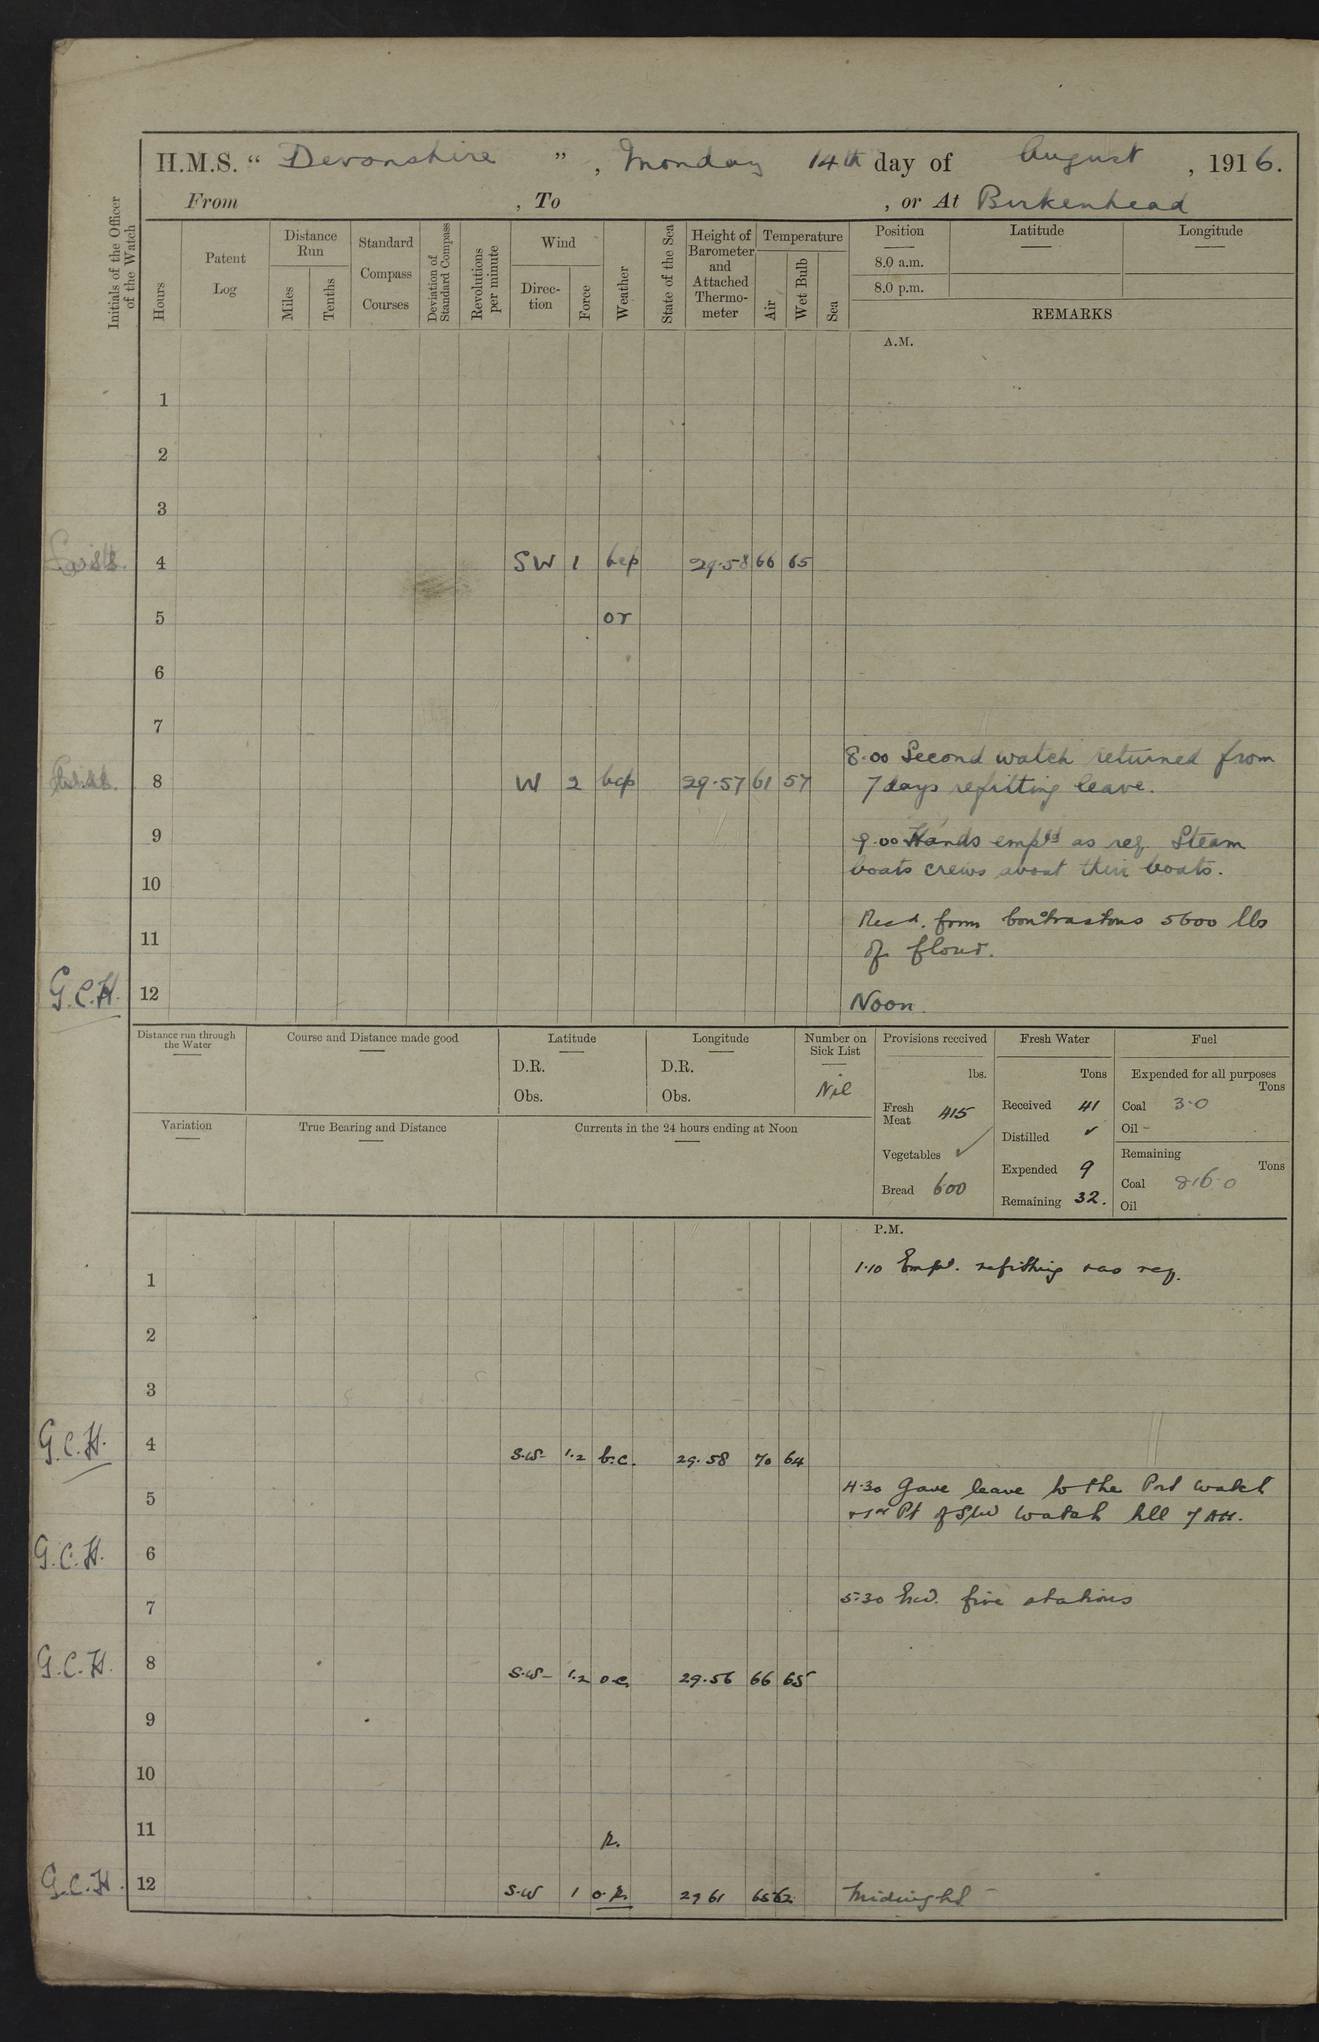 H.M.S. “ Devonshire ” , Monday 14th day of August , 1916.
From , To , or At Birkenhead
Initials of the Officer of the Watch
Hours
Patent Log
Distance Run
Miles
Tenths
Standard Compass Courses
Deviation of Standard Compass
Revolutions per minute
Wind
Direc-tion
Force
Weather
State of the Sea
Height of Barometer and Attached Thermo-meter
Temperature
Air
Wet Bulb
Sea
Position
8.0 a.m.
8.0 p.m.
Latitude
Longitude
REMARKS
A.M.
1
2
3
4 SW 1 bcp 29.58 66 65
5 or
6
7
8.00 Second watch returned from
8 W 2 bcp 29.57 61 57 7 days refitting leave.
9 9.00 Hands empld as req. Steam
boats crews about their boats.
10
Recd. from Contractors 5600 lbs
11 of flour.
G.C.H. 12 Noon.
Distance run through the Water
Course and Distance made good
Latitude
D.R.
Obs.
Longitude
D.R.
Obs.
Number on Sick List
Nil
Provisions received
lbs.
Fresh Meat 415
Vegetables ✓
Bread 600
Fresh Water
Tons
Received 41
Distilled ✓
Expended 9
Remaining 32.
Fuel
Expended for all purposes
Tons
Coal 3.0
Oil -
Remaining
Tons
Coal 816.0
Oil
Variation
True Bearing and Distance
Currents in the 24 hours ending at Noon
P.M.
1 1.10 Empd. refitting & as req.
2
3
G.C.H. 4 S.W- 1.2 b.c. 29.58 70 64
4.30 Gave leave to the Port watch
5 & 1st Pt of Stbd watch till 7 AM.
G.C.H. 6
7 5.30 Exd. fire stations
G.C.H. 8 S.W- 1.2 o.c. 29.56 66 65
9
10
11 R.
G.C.H. 12 S.W 1 o.R. 29 61 65 62 Midnight